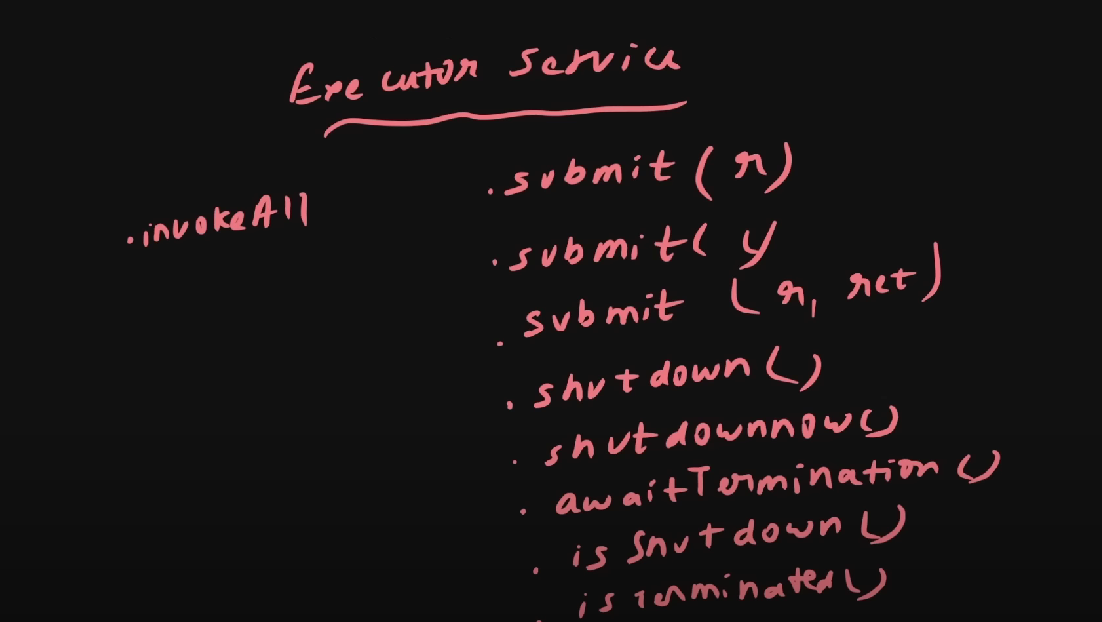 Executor Service
.submit(r)
.invokeAll
.submit( y
.submit (r, ret)
.shutdown()
.shutdownnow()
.awaitTermination()
.isShutdown()
.isTerminated()